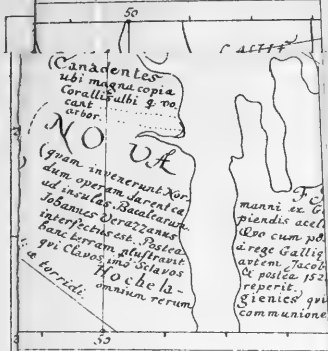 50
Castil
(Canadentes
ubi magna copia
Coralli albi q vo.
cant
arbor.
NO VÆ
(quam invenerunt Nor.
dum operam darent ca
ad insulas. Bacalearum
Iohannes Verazzanus
interfectus est. Postea
hanc terram plustravit
qui Clavos imò Sclavos
Hochela-
omnium rerum
a torridi.
manni ex G
piendis acel
Quo cum po
a rege Galliq
autem Jacob
& postea 152
reperit.
gienies qui
communione
50